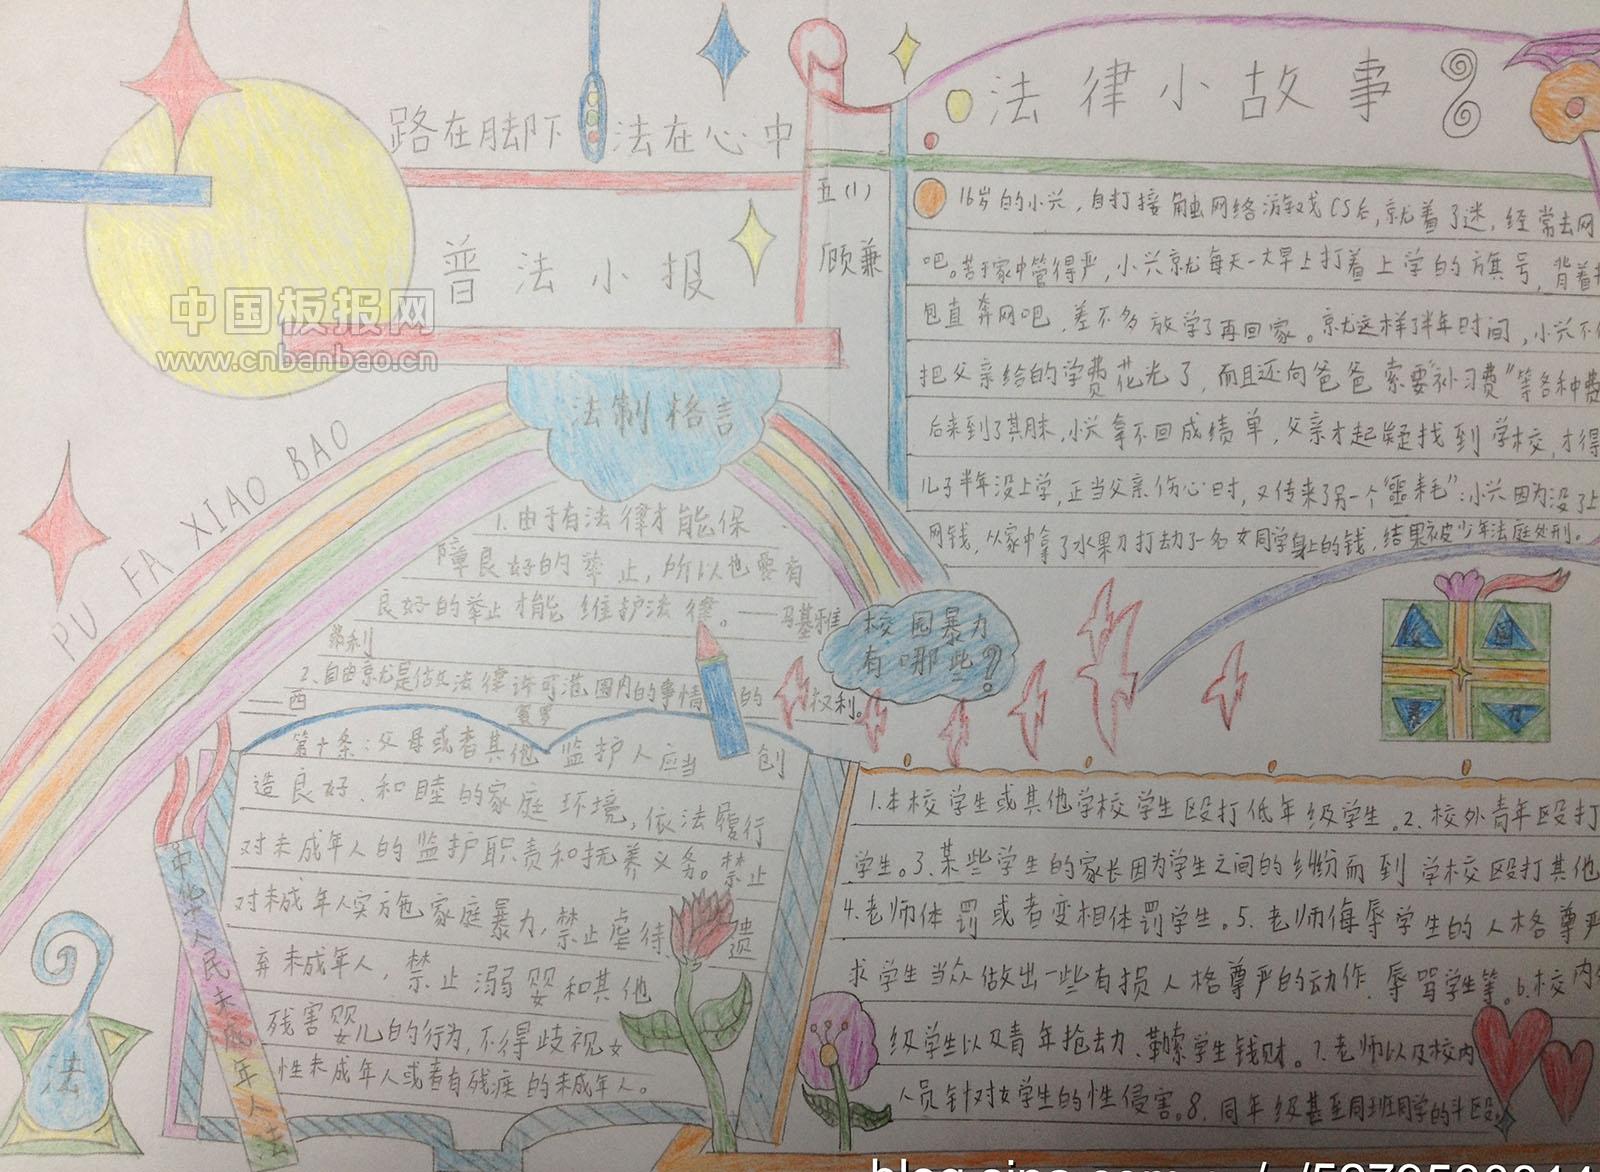 路在脚下 法在心中
普法小报
五(1)
顾兼
中国板报网
www.cnbanbao.cn
PU FA XIAO BAO
法律小故事
16岁的小兴,自打接触网络游戏CS后,就着了迷,经常去网
吧。苦于家中管得严,小兴就每天一大早上打着上学的旗号,背着书
包直奔网吧,差不多放学了再回家。就这样了半年时间,小兴不但
把父亲给的学费花光了,而且还向爸爸索要"补习费"等各种费
后来到了其月末,小兴拿不回成绩单,父亲才起疑找到学校,才得
儿子半年没上学,正当父亲伤心时,又传来了另一个"噩耗":小兴因为没了上
网钱,从家中拿了水果刀打劫了一名女同学身上的钱,结果被少年法庭处刑。
法制格言
1.由于有法律才能保
障良好的举止,所以也要有
良好的举止才能维护法律。——马基雅
弗利
2.自由就是做法律许可范围内的事情的权利。
——西
塞罗
校园暴力
有哪些?
校 园
暴 力
第十条:父母或者其他监护人应当创
造良好、和睦的家庭环境,依法履行
对未成年人的监护职责和抚养义务。禁止
对未成年人实施家庭暴力,禁止虐待、遗
弃未成年人,禁止溺婴和其他
残害婴儿的行为,不得歧视女
性未成年人或者有残疾的未成年人。
中华人民未成年人法
法
1.本校学生或其他学校学生殴打低年级学生。2.校外青年殴打
学生。3.某些学生的家长因为学生之间的纠纷而到学校殴打其他
4.老师体罚或者变相体罚学生。5.老师侮辱学生的人格尊严
求学生当众做出一些有损人格尊严的动作、辱骂学生等。6.校内
级学生以及青年抢劫、勒索学生钱财。7.老师以及校内
人员针对女学生的性侵害。8.同年级甚至同班同学的斗殴。